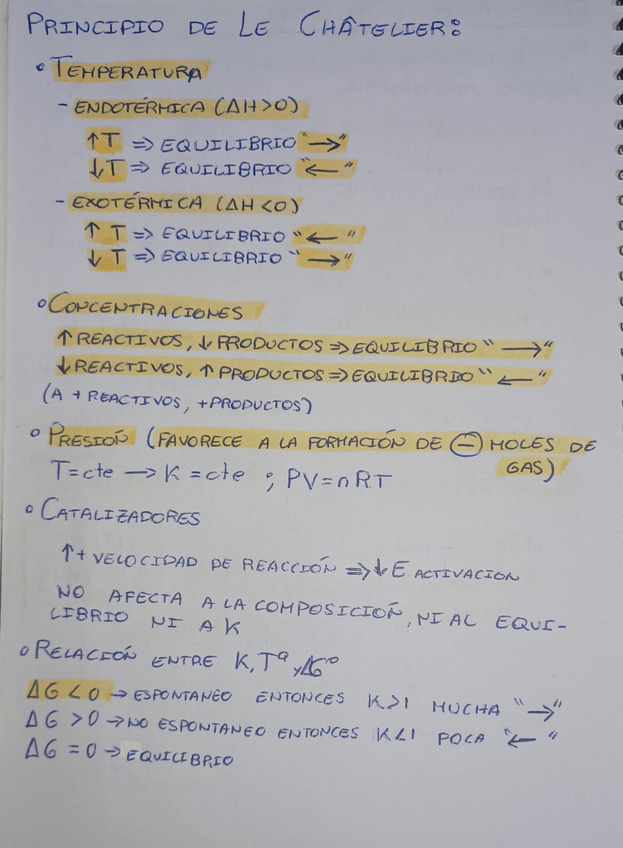 PRINCIPIO DE LE CHÂTELIER:
• TEMPERATURA
- ENDOTÉRMICA (ΔH>0)
↑T => EQUILIBRIO "→"
↓T => EQUILIBRIO "←"
- EXOTÉRMICA (ΔH<0)
↑ T => EQUILIBRIO "←"
↓ T => EQUILIBRIO "→"
• CONCENTRACIONES
↑ REACTIVOS, ↓ PRODUCTOS => EQUILIBRIO "→"
↓ REACTIVOS, ↑ PRODUCTOS => EQUILIBRIO "←"
(A + REACTIVOS, +PRODUCTOS)
• PRESIÓN (FAVORECE A LA FORMACIÓN DE ⊖ MOLES DE
GAS)
T=cte → K=cte ; PV=nRT
• CATALIZADORES
↑+ VELOCIDAD DE REACCIÓN => ↓ E ACTIVACION
NO AFECTA A LA COMPOSICIÓN, NI AL EQUI-
LIBRIO NI A K
• RELACIÓN ENTRE K, Tª y ΔGº
ΔG<0 → ESPONTANEO ENTONCES K>1 MUCHA "→"
ΔG >0 → NO ESPONTANEO ENTONCES K<1 POCA "←"
ΔG =0 → EQUILIBRIO